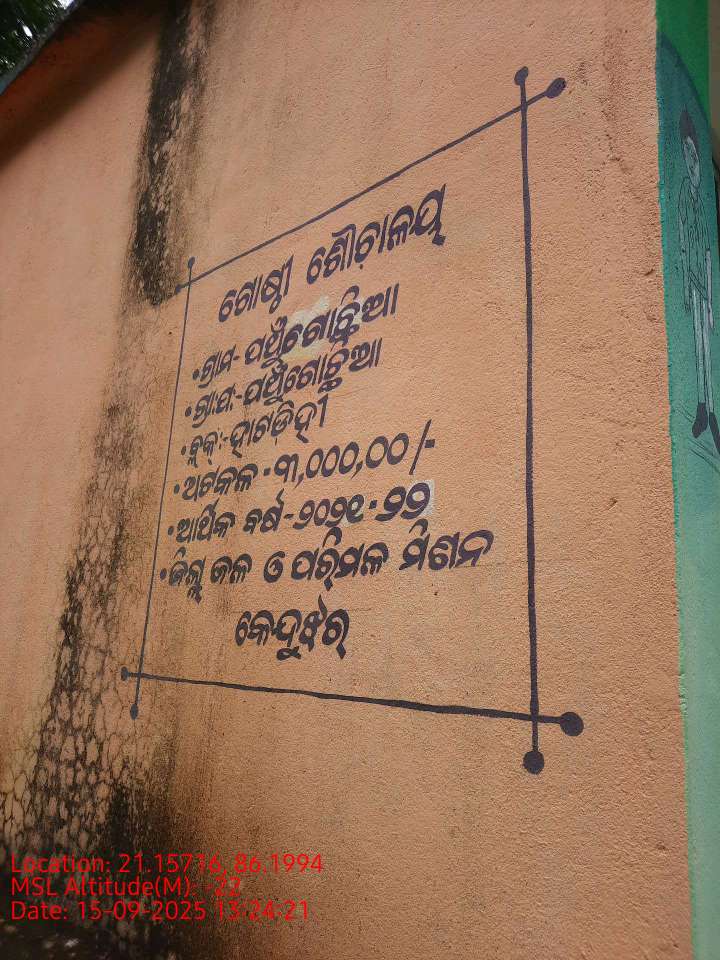 ଗୋଷ୍ଠୀ ଶୌଚାଳୟ
•ଗ୍ରାମ-ପଞ୍ଚୁଗୋଚ୍ଛିଆ
•ଗ୍ରା:ପ:-ପଞ୍ଚୁଗୋଚ୍ଛିଆ
•ବ୍ଲକ୍:-ହାଟଡ଼ିହୀ
•ଅଟକଳ-୩,୦୦୦,୦୦/-
•ଆର୍ଥିକ ବର୍ଷ-୨୦୨୧-୨୨
•ଜିଲ୍ଲା ଜଳ ଓ ପରିମଳ ମିଶନ
କେନ୍ଦୁଝର
Location: 21.15716, 86.1994
MSL Altitude(M) -22
Date: 15-09-2025 13:24:21